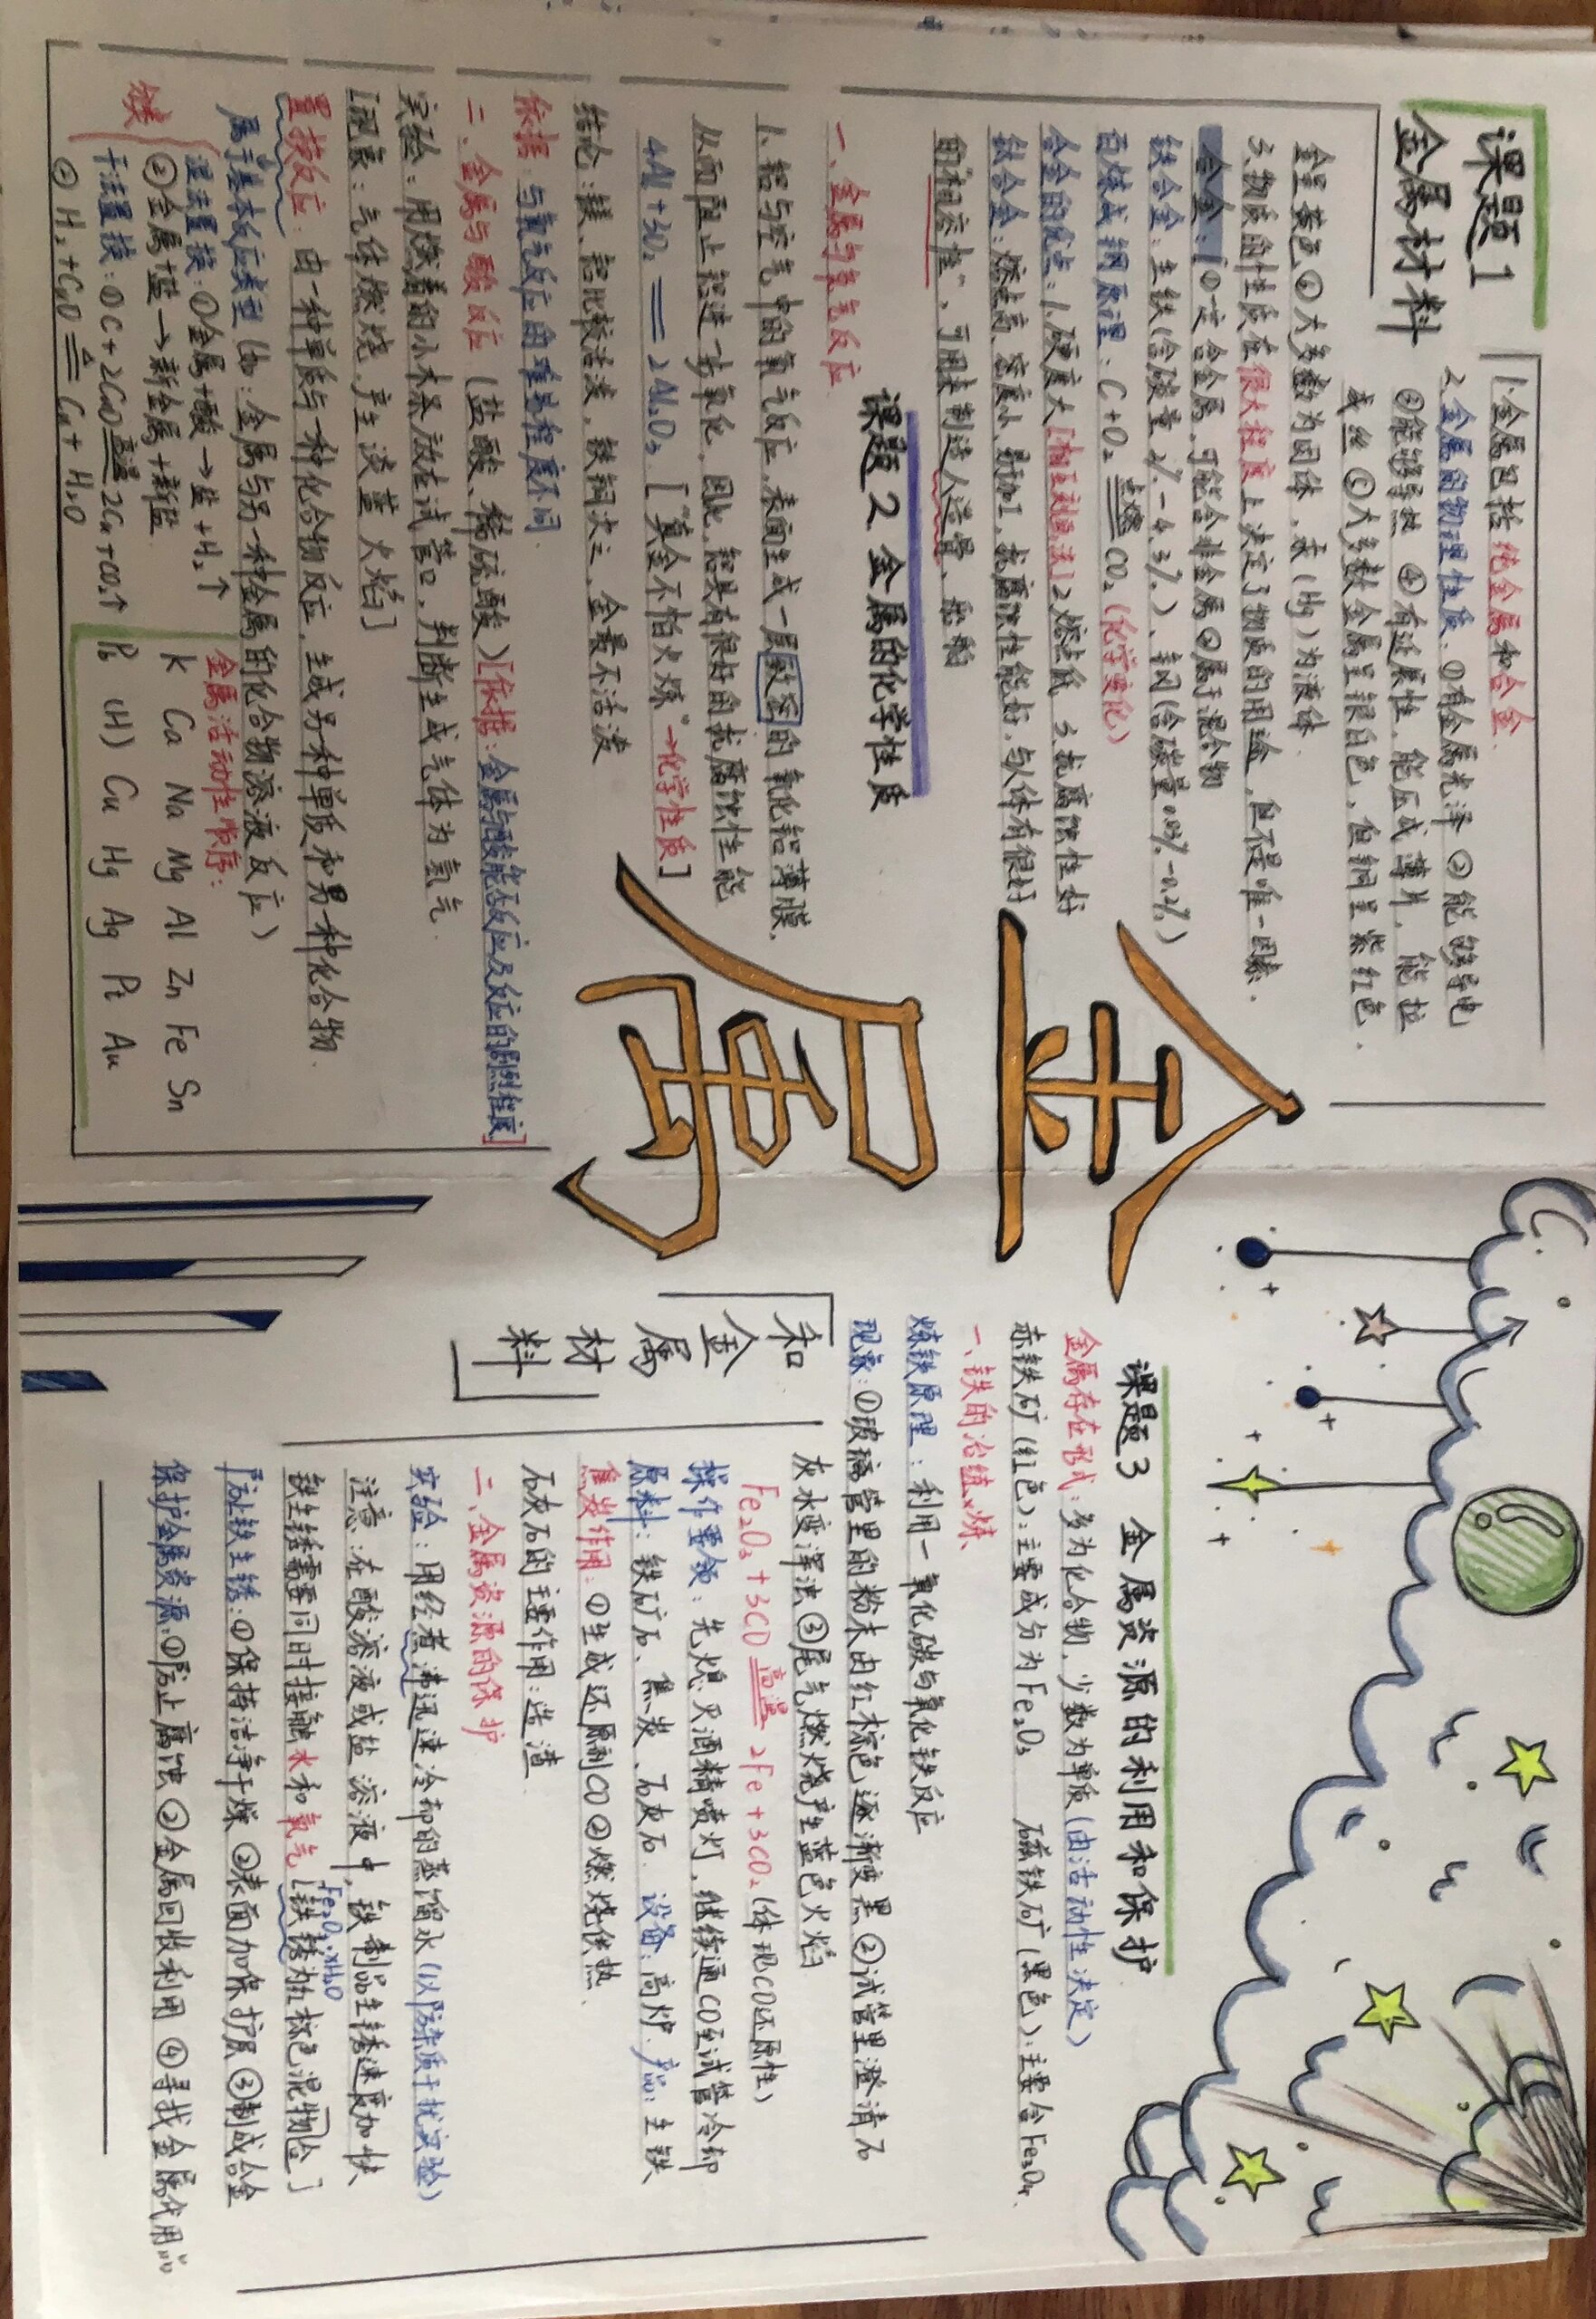 课题1
金属材料
1.金属包括纯金属和合金.
2.金属的物理性质:①有金属光泽 ②能够导电
③能够导热 ④有延展性,能压成薄片,能拉
成丝 ⑤大多数金属呈银白色,但铜呈紫红色.
金呈黄色 ⑥大多数为固体,汞(Hg)为液体.
3.物质的性质在很大程度上决定了物质的用途,但不是唯一因素.
合金:[①一定含金属,可能含非金属 ②属于混合物
铁合金:生铁(含碳量2%-4.3%)、钢(含碳量0.03%-0.2%)
百炼成钢原理:C+O₂ 点燃 CO₂(化学变化)
合金的优点:1.硬度大[相互刻画法] 2.熔点低 3.抗腐蚀性好
钛合金:熔点高、密度小、易加工、抗腐蚀性能好,与人体有很好
的"相容性",可用来制造人造骨、船舶
课题2 金属的化学性质
一、金属与氧气反应
1.铝与空气中的氧气反应,表面生成一层致密的氧化铝薄膜,
从而阻止铝进一步氧化,因此,铝具有很好的抗腐蚀性能
4Al+3O₂ == 2Al₂O₃.["真金不怕火炼"→化学性质]
结论:镁、铝比较活泼,铁铜次之,金最不活泼
依据:与氧气反应的难易程度不同.
二、金属与酸反应(盐酸、稀硫酸)[依据:金属与酸能否反应及反应的剧烈程度]
实验:用燃着的小木条放在试管口,判断生成气体为氢气.
[现象:气体燃烧,产生淡蓝火焰]
置换反应:由一种单质与一种化合物反应,生成另一种单质和另一种化合物.
属于基本反应类型(如:金属与另一种金属的化合物溶液反应)
湿法置换:①金属+酸→盐+H₂↑
②金属+盐→新金属+新盐
干法置换:①C+2CuO 高温 2Cu+CO₂↑
② H₂+CuO △ Cu+H₂O
金属活动性顺序:
K Ca Na Mg Al Zn Fe Sn
Pb (H) Cu Hg Ag Pt Au
金属
和金属材料
课题3 金属资源的利用和保护
金属存在形式:多为化合物,少数为单质(由活动性决定)
赤铁矿(红色):主要成分为Fe₂O₃ 磁铁矿(黑色):主要含Fe₃O₄.
一、铁的冶炼
炼铁原理:利用一氧化碳与氧化铁反应
现象:①玻璃管里的粉末由红棕色逐渐变黑 ②试管里澄清石
灰水变浑浊 ③尾气燃烧产生蓝色火焰
Fe₂O₃+3CO 高温 2Fe+3CO₂(体现CO还原性)
操作要领:先熄灭酒精喷灯,继续通CO至试管冷却
原料:铁矿石、焦炭、石灰石. 设备:高炉. 产品:生铁
焦炭作用:①生成还原剂CO ②燃烧供热.
石灰石的主要作用:造渣
二、金属资源的保护
实验:用经煮沸迅速冷却的蒸馏水(以防杂质干扰实验)
注意:在酸溶液或盐溶液中,铁制品生锈速度加快
Fe₂O₃·xH₂O
铁生锈需要同时接触水和氧气[铁锈为红棕色混合物]
防止铁生锈:①保持洁净干燥 ②表面加保护层 ③制成合金
保护金属资源:①防止腐蚀 ②金属回收利用 ④寻找金属代用品